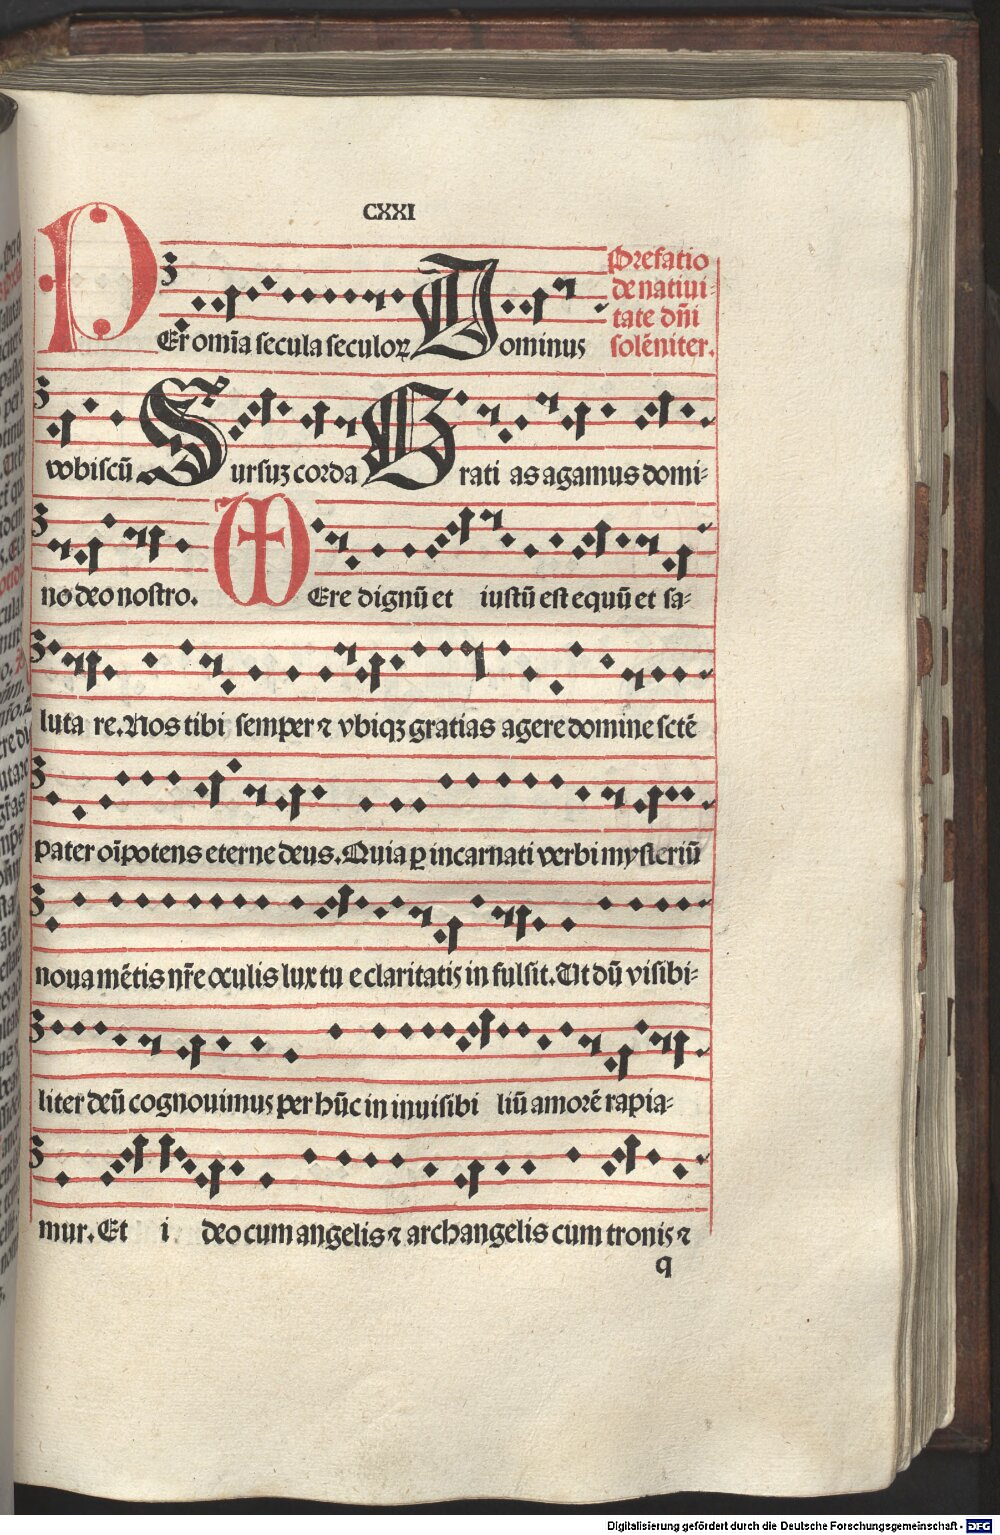 CXXI
Prefatio
de natiui-
tate dñi
solēniter.
PEr om̄ia secula seculoꝝ Dominus
vobiscū Sursuꝫ corda Grati as agamus domi-
no deo nostro. VEre dignū et iustū est equū et sa-
luta re. Nos tibi semper ⁊ vbiqꝫ gratias agere domine scтē
pater oīpotens eterne deus. Quia ꝑ incarnati verbi mysteriū
noua mētis nr̄e oculis lux tu e claritatis in fulsit. Ut dū visibi-
liter deū cognouimus per hūc in inuisibi liū amorē rapia-
mur. Et i deo cum angelis ⁊ archangelis cum tronis ⁊
q
Digitalisierung gefördert durch die Deutsche Forschungsgemeinschaft - DFG